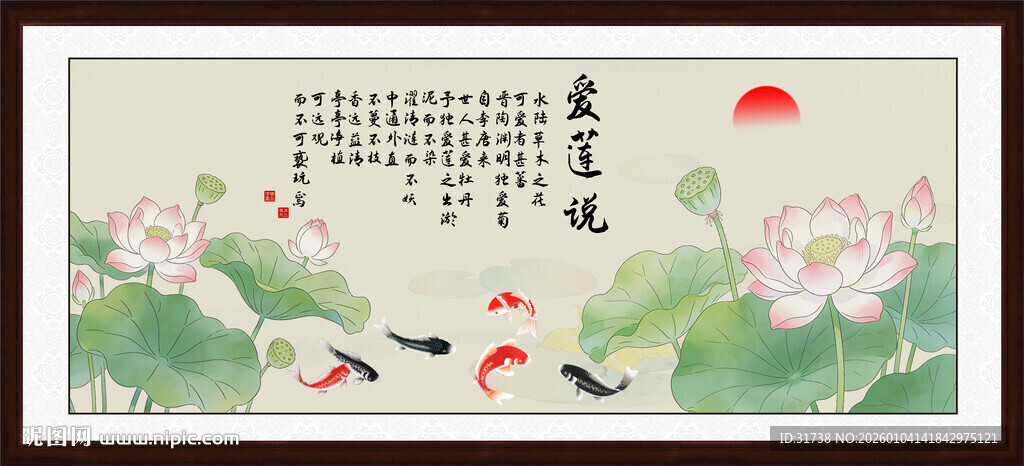 爱莲说
水陆草木之花
可爱者甚蕃
晋陶渊明独爱菊
自李唐来
世人甚爱牡丹
予独爱莲之出淤
泥而不染
濯清涟而不妖
中通外直
不蔓不枝
香远益清
亭亭净植
可远观
而不可亵玩焉
昵图网 www.nipic.com
ID:31738 NO:20260104141842975121